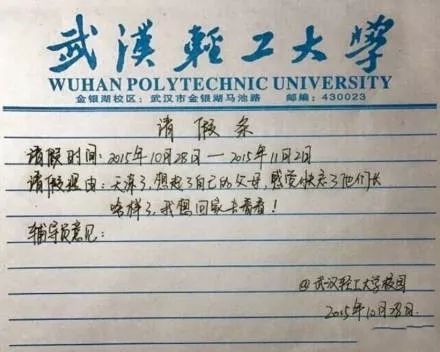 武漢輕工大學
WUHAN POLYTECHNIC UNIVERSITY
金银湖校区：武汉市金银湖马池路 邮编：430023
请假条
请假时间：2015年10月28日—2015年11月2日
请假理由：天凉了，想起了自己的父母，感觉快忘了他们长
啥样了，我想回家去看看！
辅导员意见：
@武汉轻工大学校园
2015年10月28日